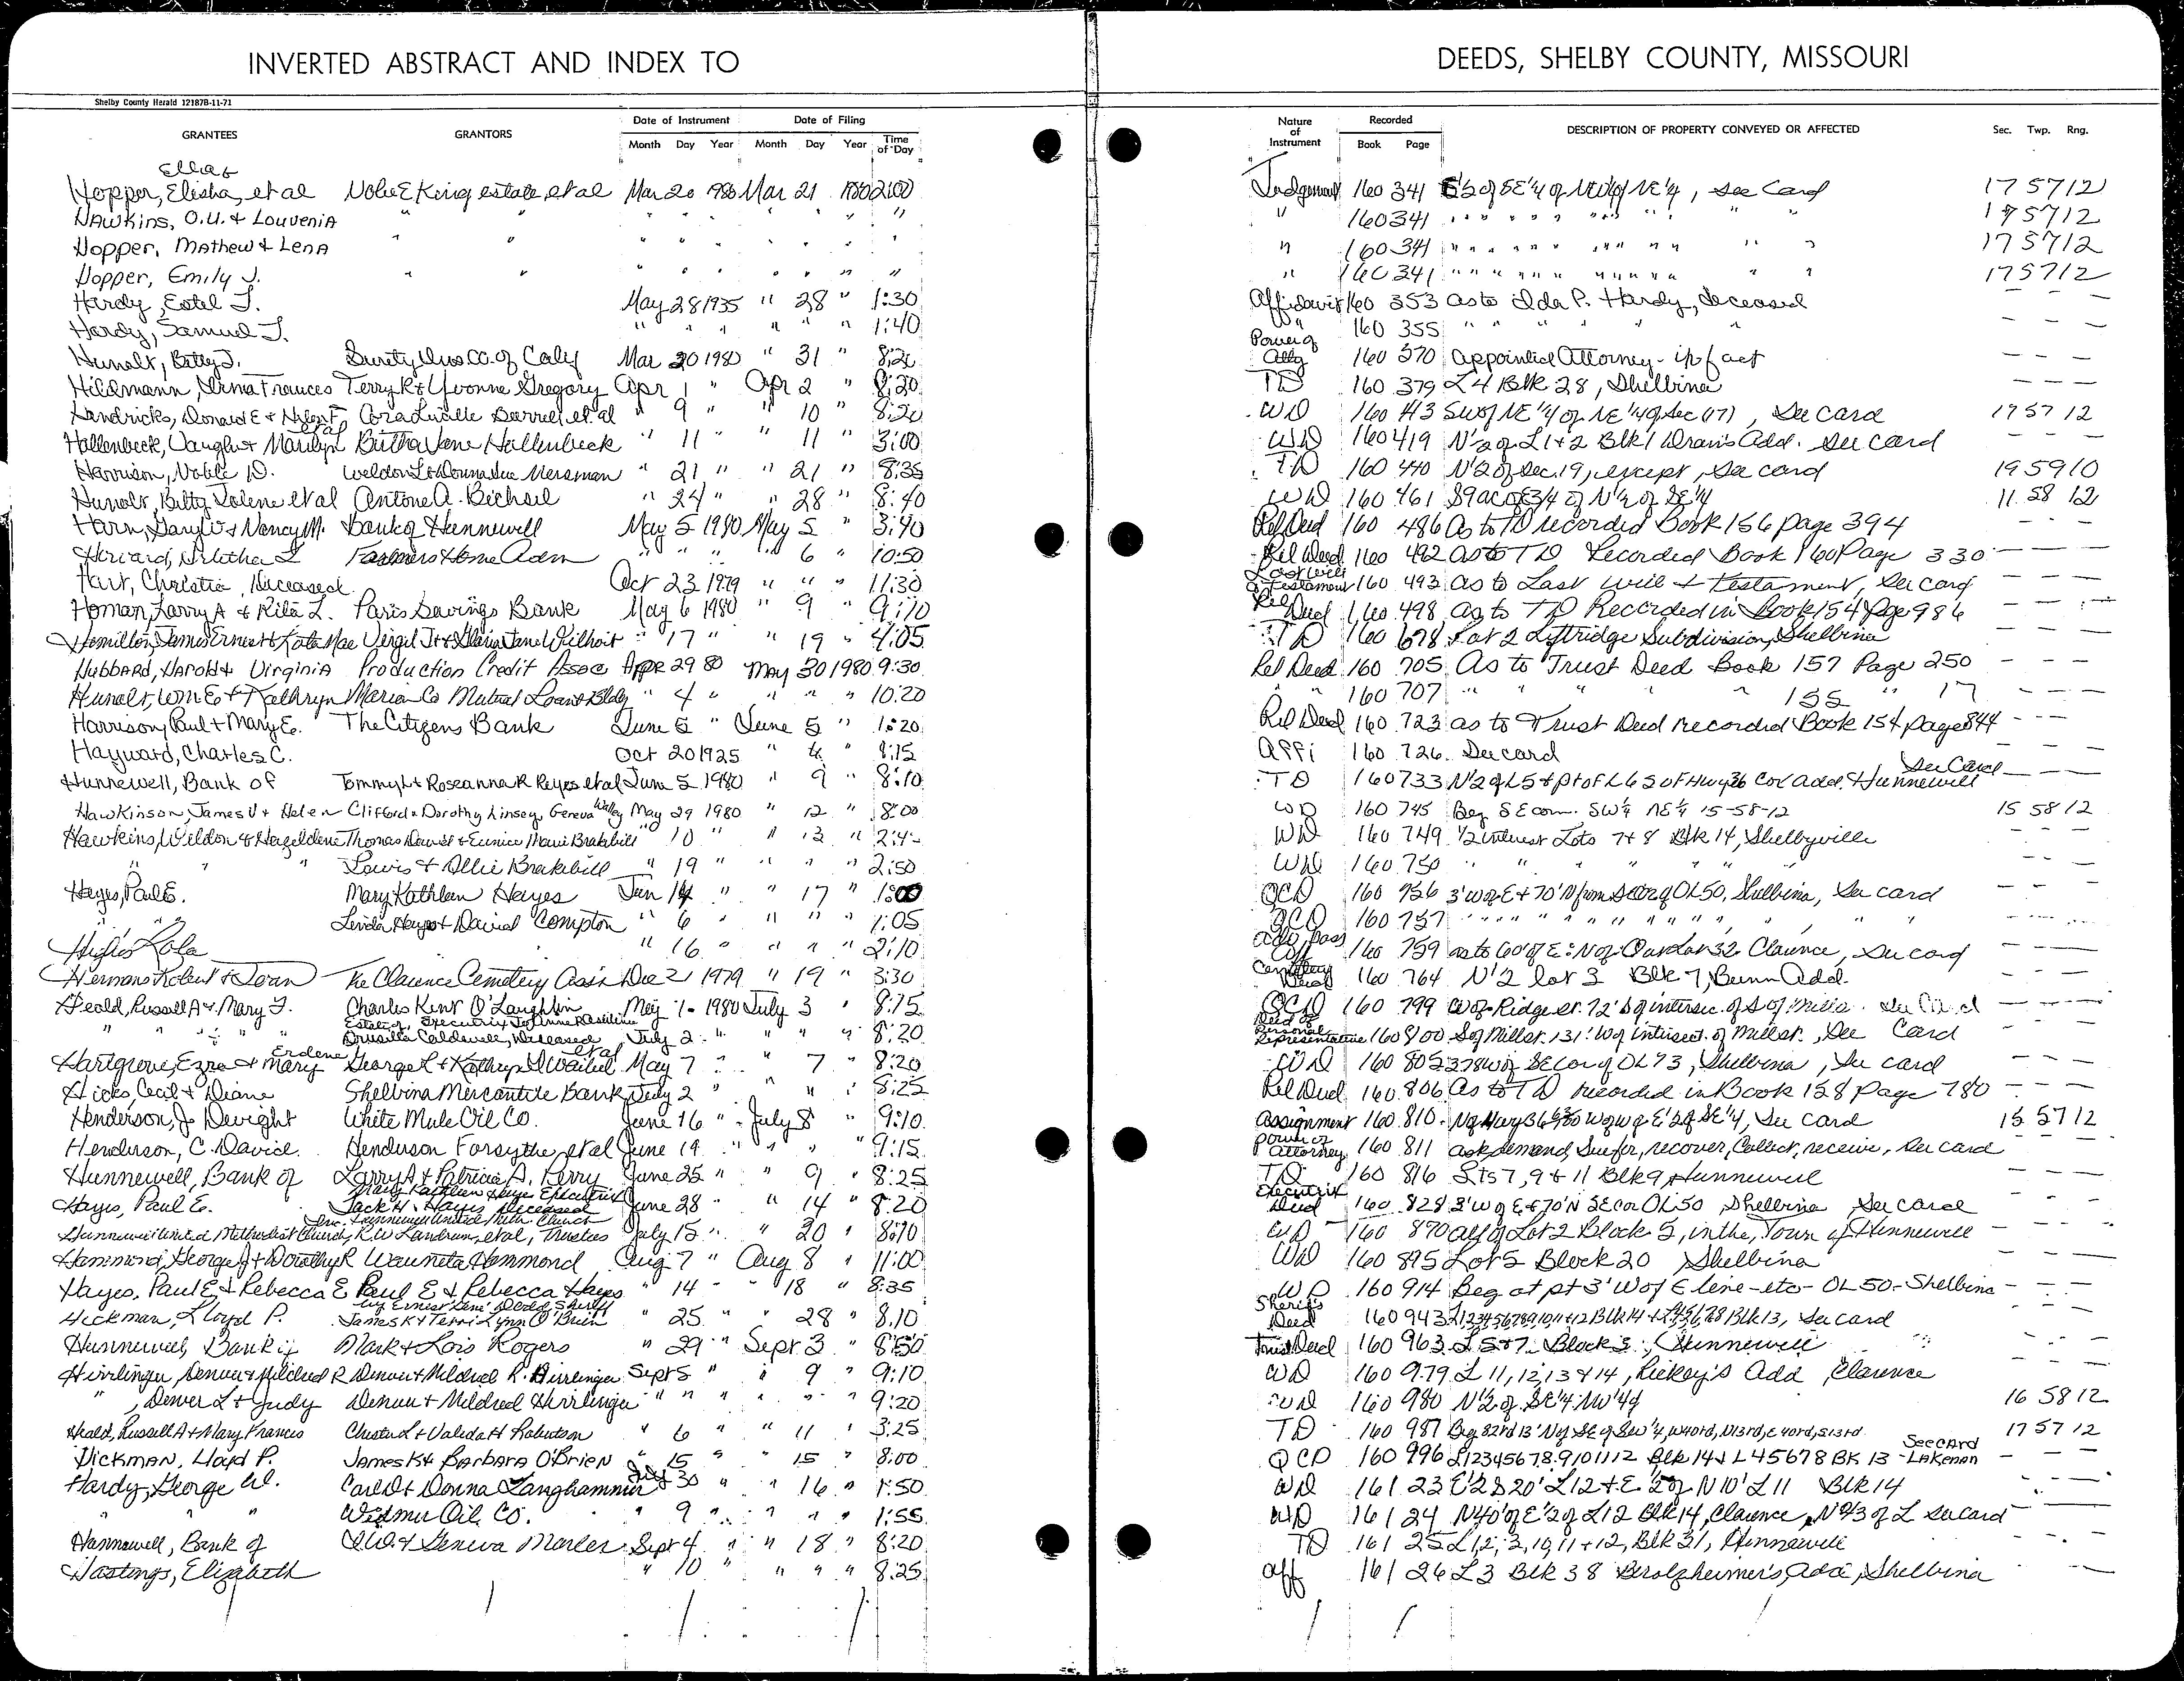 INVERTED ABSTRACT AND INDEX TO
DEEDS, SHELBY COUNTY, MISSOURI
Shelby County Herald 12187B-11-71
GRANTEES GRANTORS Date of Instrument Month Day Year Date of Filing Month Day Year Time of Day Nature of Instrument Recorded Book Page DESCRIPTION OF PROPERTY CONVEYED OR AFFECTED Sec. Twp. Rng.
Ella &
Hopper, Elisha, et al Nolie E King estate, et al Mar 20 1980 Mar 21 1980 2:00 Judgement 160 341 E½ of SE¼ of NW¼ of NE¼, See Card 17 57 12
Hawkins, O.U. & Louvenia " " " " " " " " " " 160 341 " " " " " " " " " " 17 57 12
Hopper, Mathew & Lena " " " " " " " " " " 160 341 " " " " " " " " " " 17 57 12
Hopper, Emily J. " " " " " " " " " " 160 341 " " " " " " " " " " 17 57 12
Hardy, Estel J. May 28 1935 " 28 " 1:30 Affidavit 160 353 as to Ida P. Hardy, deceased — — —
Hardy, Samuel J. " " " " " " 1:40 " 160 355 " " " " " — — —
Hunolt, Betty J. Surety Ins. Co. of Calif Mar 20 1980 " 31 " 8:20 Power of Atty 160 370 Appointed Attorney-in-fact — — —
Hildmann, Irma Frances Terry R & Yvonne Gregory Apr 1 " Apr 2 " 8:20 TD 160 379 L 4 Blk 28, Shelbina — — —
Hendricks, Donald E & Helen F, Cora Lucille Burrell, et al " 9 " " 10 " 8:20 WD 160 413 SW of NE¼ of NE¼ of Sec (17), See card 17 57 12
Hollenbeck, Vaughn & Marilyn et al Birtha Jane Hollenbeck " 11 " " 11 " 3:00 WD 160 419 N½ of L 1 & 2 Blk 1 Drain's Add. See card — — —
Harrison, Noble D. Weldon L & Donna Sue Mersman " 21 " " 21 " 8:35 TD 160 440 N½ of Sec. 19, except, See card 19 59 10
Hunolt, Betty Jolene et al Antone A. Bichsel " 24 " " 28 " 8:40 WD 160 461 59 ac of E 3/4 of N½ of SE¼ 11 58 12
Horn, Gary W & Nancy M. Bank of Hunnewell May 5 1980 May 5 " 3:40 Rel Deed 160 486 As to TD recorded Book 156 page 394 — — —
Farmers Home Adm " " " " 6 " 10:50 Rel Deed 160 492 as to TD Recorded Book 160 Page 330 — — —
Hart, Christie, Deceased Oct 23 1979 " " " 11:30 Last Will & Testament 160 493 as to Last Will & Testament, See card — — —
Homan, Larry A & Rita L. Paris Savings Bank May 6 1980 " 9 " 9:10 Rel Deed 160 498 as to TD Recorded in Book 154 Page 986 — — —
Hamilton, James Ernest & Lota Mae Virgil Jr & Gloria Jane Wilhoit " 17 " " 19 " 4:05 TD 160 678 Lot 2 Lyttridge Subdivision, Shelbina — — —
Hubbard, Harold & Virginia Production Credit Assoc Apr 29 80 May 30 1980 9:30 Rel Deed 160 705 As to Trust Deed Book 157 Page 250 — — —
Hunolt, Wm E & Kathryn Marion Co Mutual Loan & Bldg " 4 " " " " 10:20 " " 160 707 " " " " 155 " 17 — — —
Harrison, Paul & Mary E. The Citizens Bank June 5 " June 5 " 1:20 Rel Deed 160 723 as to Trust Deed recorded Book 154 page 844 — — —
Hayward, Charles C. Oct 20 1925 " 6 " 8:15 Affi 160 726 See card — — —
Hunnewell, Bank of Tommy L & Roseanna R Reyes et al June 5 1980 " 9 " 8:10 TD 160 733 N½ of L5 & pt of L6 S of Hwy 36 Cox Add. Hunnewell See Card — — —
Hawkinson, James V & Helen Clifford & Dorothy Linsey, Geneva Walley May 29 1980 " 12 " 8:00 WD 160 745 Beg SE corn. SW¼ NE¼ 15-58-12 15 58 12
Hawkins, Weldon & Hazeldene Thomas Daniel & Eunice Marie Brakebill " 10 " " 13 " 2:4- WD 160 749 ½ interest Lots 7 & 8 Blk 14, Shelbyville — — —
" " " Lewis & Ollie Brakebill " 19 " " " " 2:50 WD 160 750 " " " " " — — —
Hayes, Paul E. Mary Kathleen Hayes Jun 14 " " 17 " 1:00 QCD 160 756 3' W of E & 70' N from SE cor of OL 50, Shelbina, See card — — —
" " Linda Hayes & David Compton " 6 " " " " 1:05 QCD 160 757 " " " " " " " " " " — — —
Highs Lola " 16 " " " " 2:10 Adv. Poss Aff 160 759 as to 60' of E: N of Outlot 32 Clarence, See card — — —
Hermans Robert & Joan The Clarence Cemetery Ass'n Dec 21 1979 " 19 " 3:30 Cemetery Deed 160 764 N½ lot 3 Blk 7, Bunn Add. — — —
Heald, Russell A & Mary F. Charles Kent O'Laughlin May 1 - 1980 July 3 " 8:15 QCD 160 799 W of Ridge St. 72' S of intersec. of S of Mills. See Card — — —
" " " " Estate of, Drusilla Caldwell, Deceased, July 2 " " " " 8:20 Deed of Personal Representative 160 800 S of Mill St. 131' W of intersect. of Mill St., See Card — — —
Hartgrove, Ezra & Mary Erdene George L & Kathryn L Waibel et al May 7 " " 7 " 8:20 WD 160 805 278' W of SE cor of OL 73, Shelbina, See card — — —
Hicks, Cecil & Diane Shelbina Mercantile Bank July 2 " " " " 8:25 Rel Deed 160 806 As to TD recorded in Book 158 Page 780 — — —
Henderson, J. Dwight White Mule Oil Co. June 16 " July 8 " 9:10 Assignment 160 810 N of Hwy 36 & 630 W of W of E½ of SE¼, See Card 15 57 12
Henderson, C. David Henderson Forsythe, et al June 19 " " " " 9:15 Power of Attorney 160 811 ask, demand, Sue for, recover, Collect, receive, See card
Hunnewell, Bank of Larry A & Patricia A. Perry June 25 " " 9 " 8:25 TD 160 816 Lts 7, 9 & 11 Blk 9, Hunnewell — — —
Hayes, Paul E. Mary Kathleen Hayes Executrix Jack H. Hayes Deceased June 28 " " 14 " 8:20 Executrix Deed 160 828 3' W of E & 70' N SE cor OL 50 Shelbina See card — — —
Hunnewell United Methodist Church, Inc. Hunnewell United Meth. Church R.W. Landrum, et al, Trustees July 15 " " 20 " 8:10 WD 160 870 all of Lot 2 Block 5, in the Town of Hunnewell — — —
Hammond, George J & Dorothy R Wauneta Hammond Aug 7 " Aug 8 " 11:00 WD 160 895 Lot 5 Block 20 Shelbina — — —
Hayes, Paul E, & Rebecca E Paul E & Rebecca Hayes " 14 " " 18 " 8:35 WD 160 914 Beg at pt 3' W of E line - etc - OL 50 - Shelbina — — —
Hickman, Lloyd P. by Ernest Gene Sheriff James K & Terri Lynn O'Brien " 25 " " 28 " 8:10 Sheriff's Deed 160 943 L 1,2,3,4,5,6,7,8,9,10,11 & 12 Blk 14 & L 4,5,6,7,8 Blk 13, See card — — —
Hunnewell, Bank of Mark & Lois Rogers " 29 " Sept 3 " 8:50 Trust Deed 160 963 L 5 & 7 Block 3, Hunnewell
Hirrlinger, Denver & Mildred R Denver & Mildred R. Hirrlinger Sept 5 " " 9 " 9:10 WD 160 979 L 11, 12, 13 & 14, Rickey's Add Clarence — — —
", Denver L & Judy Denver & Mildred Hirrlinger " " " " " " 9:20 WD 160 980 N½ of SE¼ NW¼ 16 58 12
Heald, Russell A & Mary Francis Chester L & Valida H Robertson " 6 " " 11 " 3:25 TD 160 987 Beg 82rd 13' N of SE of SW¼, W40rd, N13rd, E 40rd, S13rd 17 57 12
Hickman, Lloyd P. James K & Barbara O'Brien " 15 " " 15 " 8:00 QCD 160 996 L 1 2 3 4 5 6 7 8 9 10 11 12 Blk 14 & L 4 5 6 7 8 BK 13 - Lakenan See Card — — —
Hardy, George W. Carl D & Donna Langhammer July 30 " " 16 " 1:50 WD 161 23 E½ S 20' L 12 & E ½ of N 10' L 11 Blk 14 — — —
" " Widmer Oil Co. " 9 " " " " 1:55 WD 161 24 N 40' of E½ of L 12 Blk 14, Clarence, N 2/3 of L See card — — —
Hunnewell, Bank of J.W. & Geneva Marler Sept 4 " " 18 " 8:20 TD 161 25 L 1, 2, 3, 10, 11 & 12, Blk 31, Hunnewell
Hastings, Elizabeth " 10 " " " " 8:25 Aff 161 26 L 3 Blk 38 Berolzheimer's, Add, Shelbina